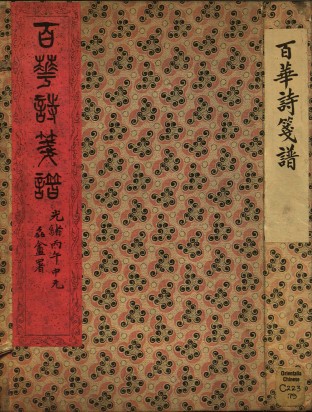 百華詩箋譜
百華詩箋譜
光緒丙午中元
磊盦署
Orientalia
Chinese
C223